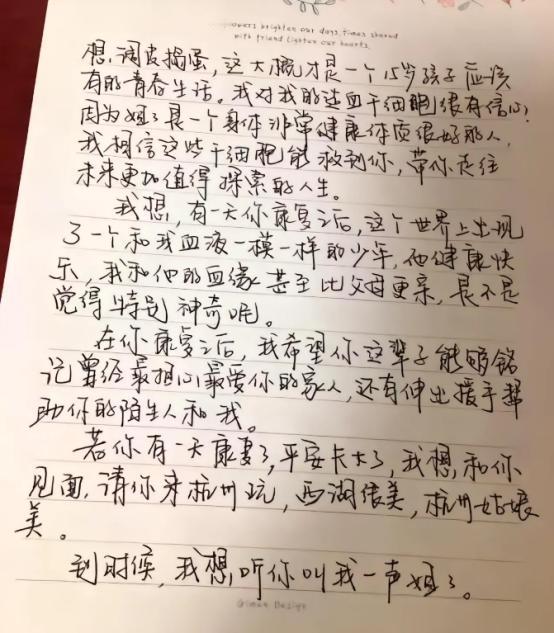 flowers brighten our days, times shared
with friend lighten our hearts.
想，调皮捣蛋，这大概才是一个15岁孩子应该
有的青春生活。我对我的造血干细胞很有信心，
因为姐姐是一个身体非常健康体质很好的人，
我相信这些干细胞能救到你，带你走往
未来更加值得探索的人生。
我想，有一天你康复之后，这个世界上出现
了一个和我血液一模一样的少年，他健康快
乐，我和他的血缘甚至比父母更亲，是不是
觉得特别神奇呢。
在你康复之后，我希望你这辈子能够铭
记曾经最担心最爱你的家人，还有伸出援手帮
助你的陌生人和我。
若你有一天康复了，平安长大了，我想，和你
见面，请你来杭州玩，西湖很美，杭州姑娘
美。
到时候，我想，听你叫我一声姐姐。
Design